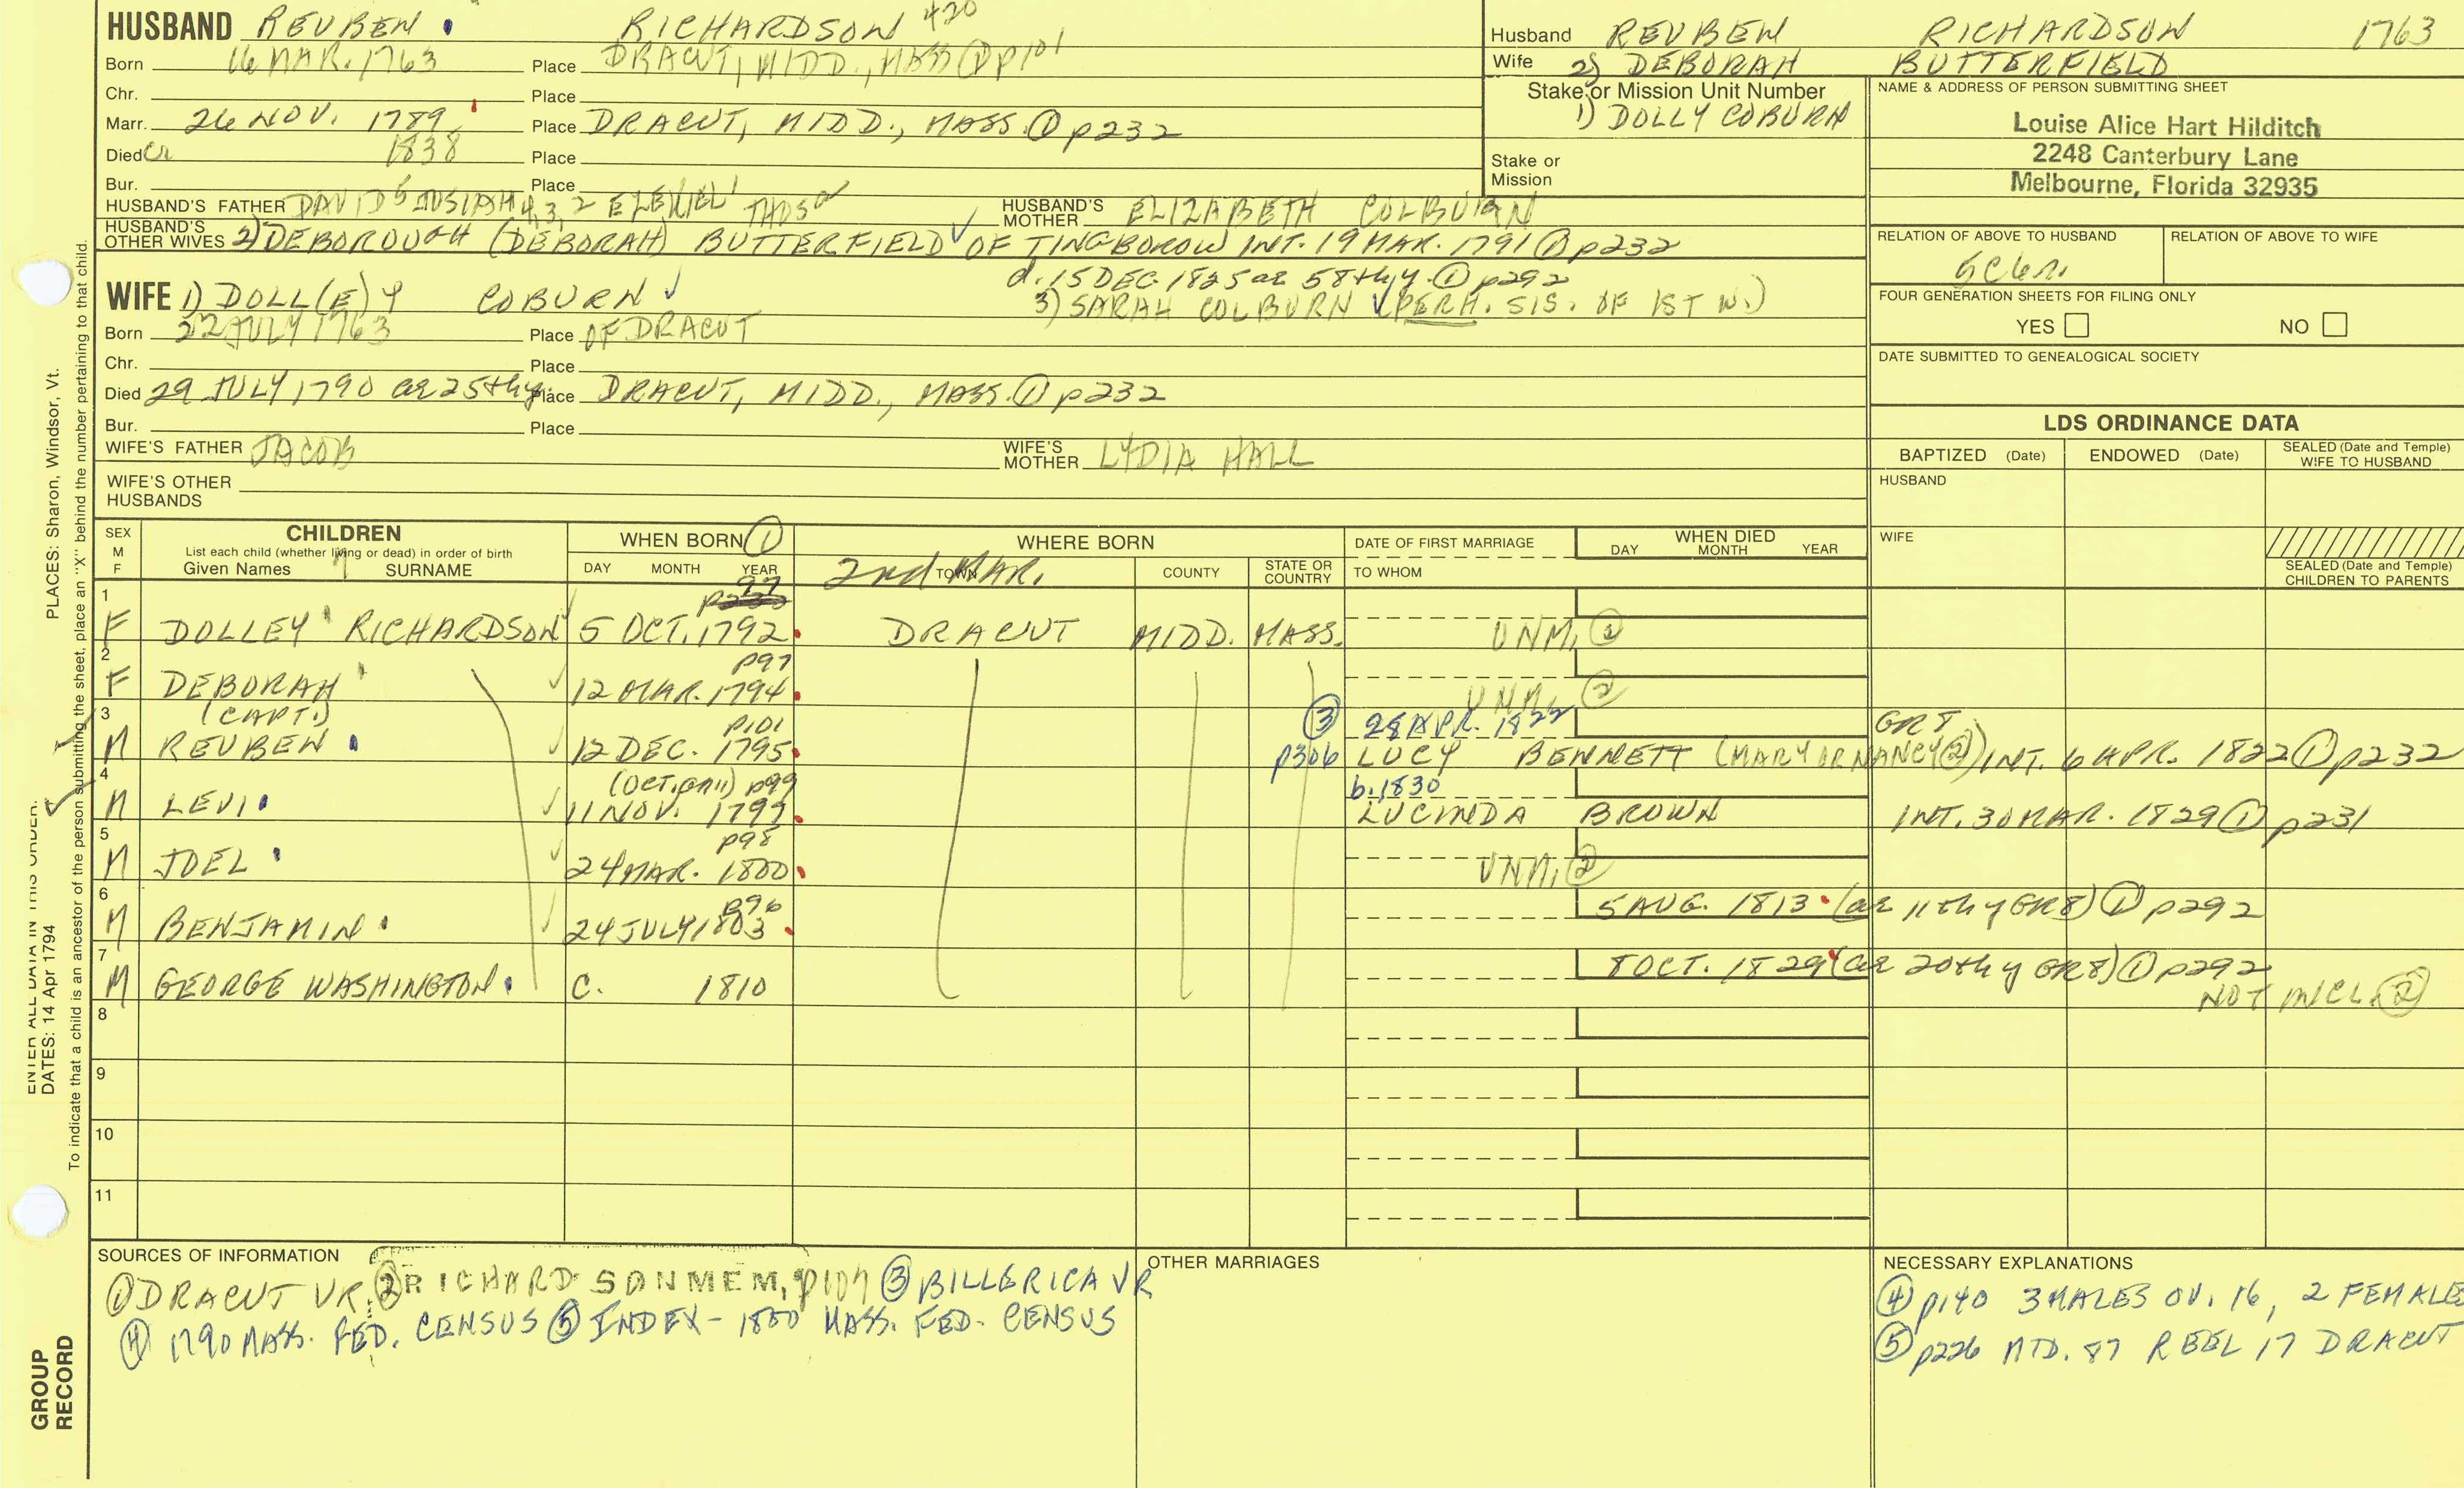 HUSBAND REUBEN RICHARDSON 420
Born 16 MAR. 1763 Place DRACUT, MIDD., MASS ① p101
Chr. Place
Marr. 26 NOV. 1789 Place DRACUT, MIDD., MASS. ① p232
Died 1838 Place
Bur. Place
HUSBAND'S FATHER DAVID 5 JOSIAH 4, 3, 2 EZEKIEL 1 THOS
HUSBAND'S MOTHER ELIZABETH COLBURN
HUSBAND'S OTHER WIVES 2) DEBOROUGH (DEBORAH) BUTTERFIELD OF TINGBOROW INT. 19 MAR. 1791 ① p232
d. 15 DEC. 1825 ae 58thy. ① p292
3) SARAH COLBURN (PERH. SIS. OF 1ST W.)
WIFE 1) DOLL(E)Y COBURN
Born 22 JULY 1763 Place OF DRACUT
Chr. Place
Died 29 JULY 1790 ae 25thy Place DRACUT, MIDD., MASS. ① p232
Bur. Place
WIFE'S FATHER JACOB
WIFE'S MOTHER LYDIA HALL
WIFE'S OTHER HUSBANDS
Husband REUBEN RICHARDSON 1763
Wife 2) DEBORAH BUTTERFIELD
Stake or Mission Unit Number
1) DOLLY COBURN
Stake or Mission
NAME & ADDRESS OF PERSON SUBMITTING SHEET
Louise Alice Hart Hilditch
2248 Canterbury Lane
Melbourne, Florida 32935
RELATION OF ABOVE TO HUSBAND
RELATION OF ABOVE TO WIFE
FOUR GENERATION SHEETS FOR FILING ONLY
YES NO
DATE SUBMITTED TO GENEALOGICAL SOCIETY
LDS ORDINANCE DATA
BAPTIZED (Date) ENDOWED (Date) SEALED (Date and Temple) WIFE TO HUSBAND
HUSBAND
WIFE
SEALED (Date and Temple) CHILDREN TO PARENTS
SEX M F
CHILDREN
List each child (whether living or dead) in order of birth
Given Names SURNAME
WHEN BORN ①
DAY MONTH YEAR
WHERE BORN
2nd MAR.
TOWN COUNTY STATE OR COUNTRY
DATE OF FIRST MARRIAGE
TO WHOM
WHEN DIED
DAY MONTH YEAR
1 97
F DOLLEY RICHARDSON 5 OCT. 1792 DRACUT MIDD. MASS. UNM. ②
2 p97
F DEBORAH 12 MAR. 1794 UNM. ②
3 (CAPT.) p101 ③ 28 APR. 1822 GRT
M REUBEN 12 DEC. 1795 p306 LUCY BENNETT (MARY OR NANCY ②) INT. 6 APR. 1822 ① p232
4 p99 b. 1830
M LEVI 11 NOV. 1797 LUCINDA BROWN INT. 30 MAR. 1829 ① p231
5 p98
M JOEL 24 MAR. 1800 UNM. ②
6 p96 5 AUG. 1813 (ae 11thy GR8) ① p292
M BENJAMIN 24 JULY 1803
7 8 OCT. 1829 (ae 20thy GR8) ① p292
M GEORGE WASHINGTON C. 1810 NOT INCL. ②
8
9
10
11
SOURCES OF INFORMATION
① DRACUT VR. ② RICHARDSON MEM, p107 ③ BILLERICA VR
④ 1790 MASS. FED. CENSUS ⑤ INDEX - 1800 MASS. FED. CENSUS
OTHER MARRIAGES
NECESSARY EXPLANATIONS
④ p140 3 MALES OV. 16, 2 FEMALE
⑤ p226 MTD. 87 REEL 17 DRACUT
PLACES: Sharon, Windsor, Vt.
ENTER ALL DATA IN THIS ORDER:
DATES: 14 Apr 1794
To indicate that a child is an ancestor of the person submitting the sheet, place an "X" behind the number pertaining to that child.
GROUP RECORD